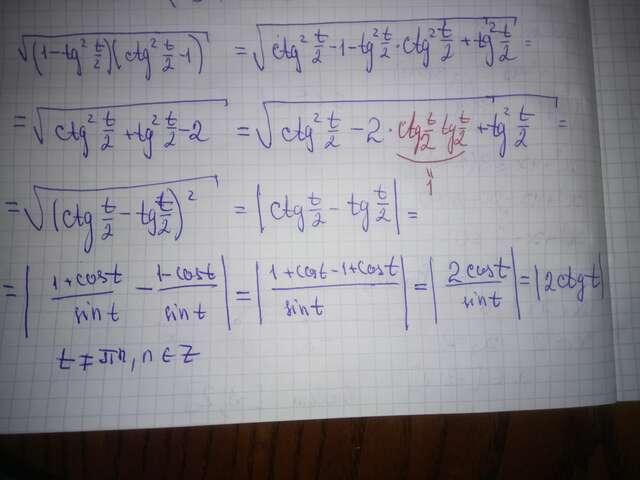 √((1-tg² t/2)(ctg² t/2 -1)) = √(ctg² t/2 -1-tg² t/2 · ctg² t/2 + tg² t/2) =
= √(ctg² t/2 + tg² t/2 - 2) = √(ctg² t/2 - 2 · ctg t/2 tg t/2 + tg² t/2) =
1
= √((ctg t/2 - tg t/2)²) = |ctg t/2 - tg t/2| =
= |(1+cost)/sint - (1-cost)/sint| = |(1+cost-1+cost)/sint| = |2cost/sint| = |2ctgt|
t ≠ πn, n ∈ Z